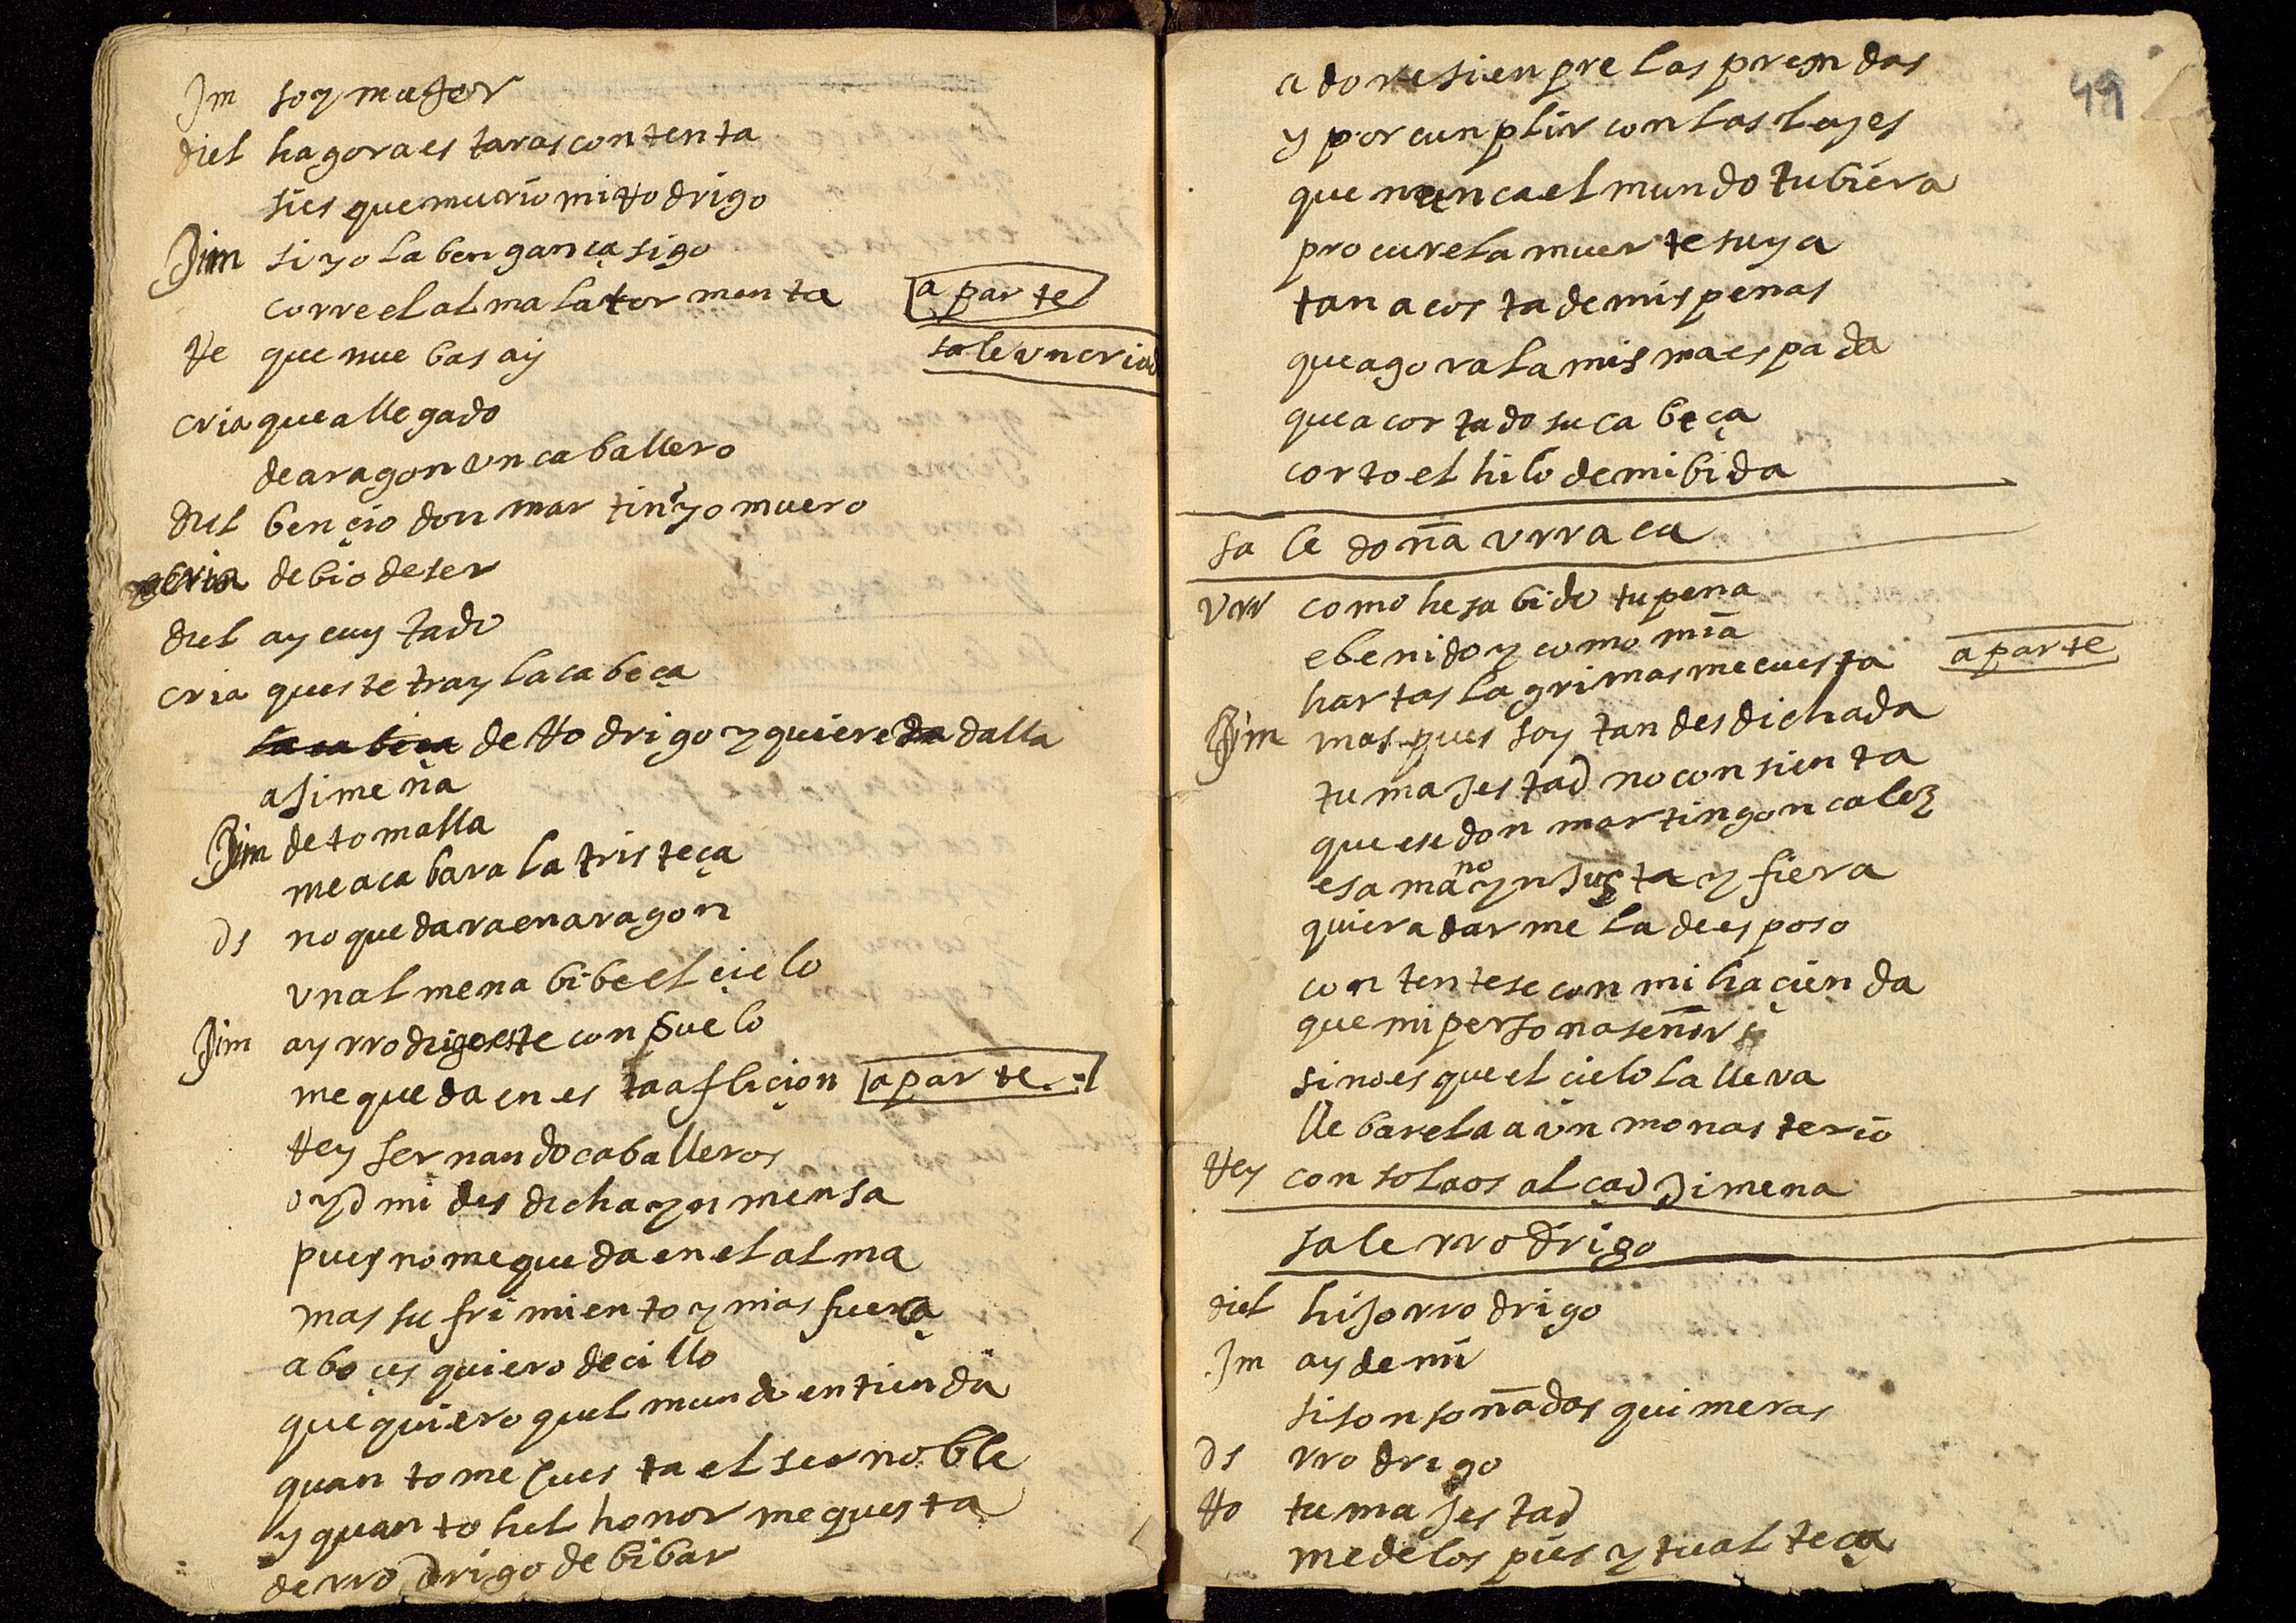 Jm soy mujer
diel hagora estaras contenta
sies que murio mi Rodrigo
Jim si yo la bengança sigo
corre el alma la tormenta aparte
Re que nuebas ay sale un criado
cria que a llegado
de aragon un caballero
diel bençio don martin yo muero
cria debio de ser
diel ay cuytado
cria queste tray la cabeça
de Rodrigo y quiere dalla
a jimena
Jim de tomalla
me acabara la tristeça
ds no quedara en aragon
un almena bibe el çielo
Jim ay rrodrigo este consuelo
me queda en esta afliçion aparte
Rey fernando caballeros
oyd mi desdicha ynmensa
pues no me queda en el alma
mas sufrimiento y mas fuerça
a boçes quiero decillo
que quiero quel mundo entienda
quanto me cuesta el ser noble
y quanto hel honor me questa
de rrodrigo de bibar
49
adore sienpre las prendas
y por cunplir con las leyes
que nunca el mundo tubiera
procure la muerte suya
tan a costa de mis penas
que agora la misma espada
que a cortado su cabeça
corto el hilo de mi bida
sale doña urraca
Urr como he sabido tu pena
e benido y como mia
hartas lagrimas me cuesta aparte
Jim mas pues soy tan desdichada
tu majestad no consienta
que ese don martin gonçalez
esa mano ynjusta y fiera
quiera darme la de esposo
contentese con mi haçienda
que mi persona señor
si no es que el cielo la lleva
llebarela a un monasterio
Rey consolaos alçad Jimena
sale rrodrigo
diel hijo rrodrigo
Jm ay de mi
si son soñadas quimeras
ds rrodrigo
Ro tu majestad
me de los pies y tu alteça